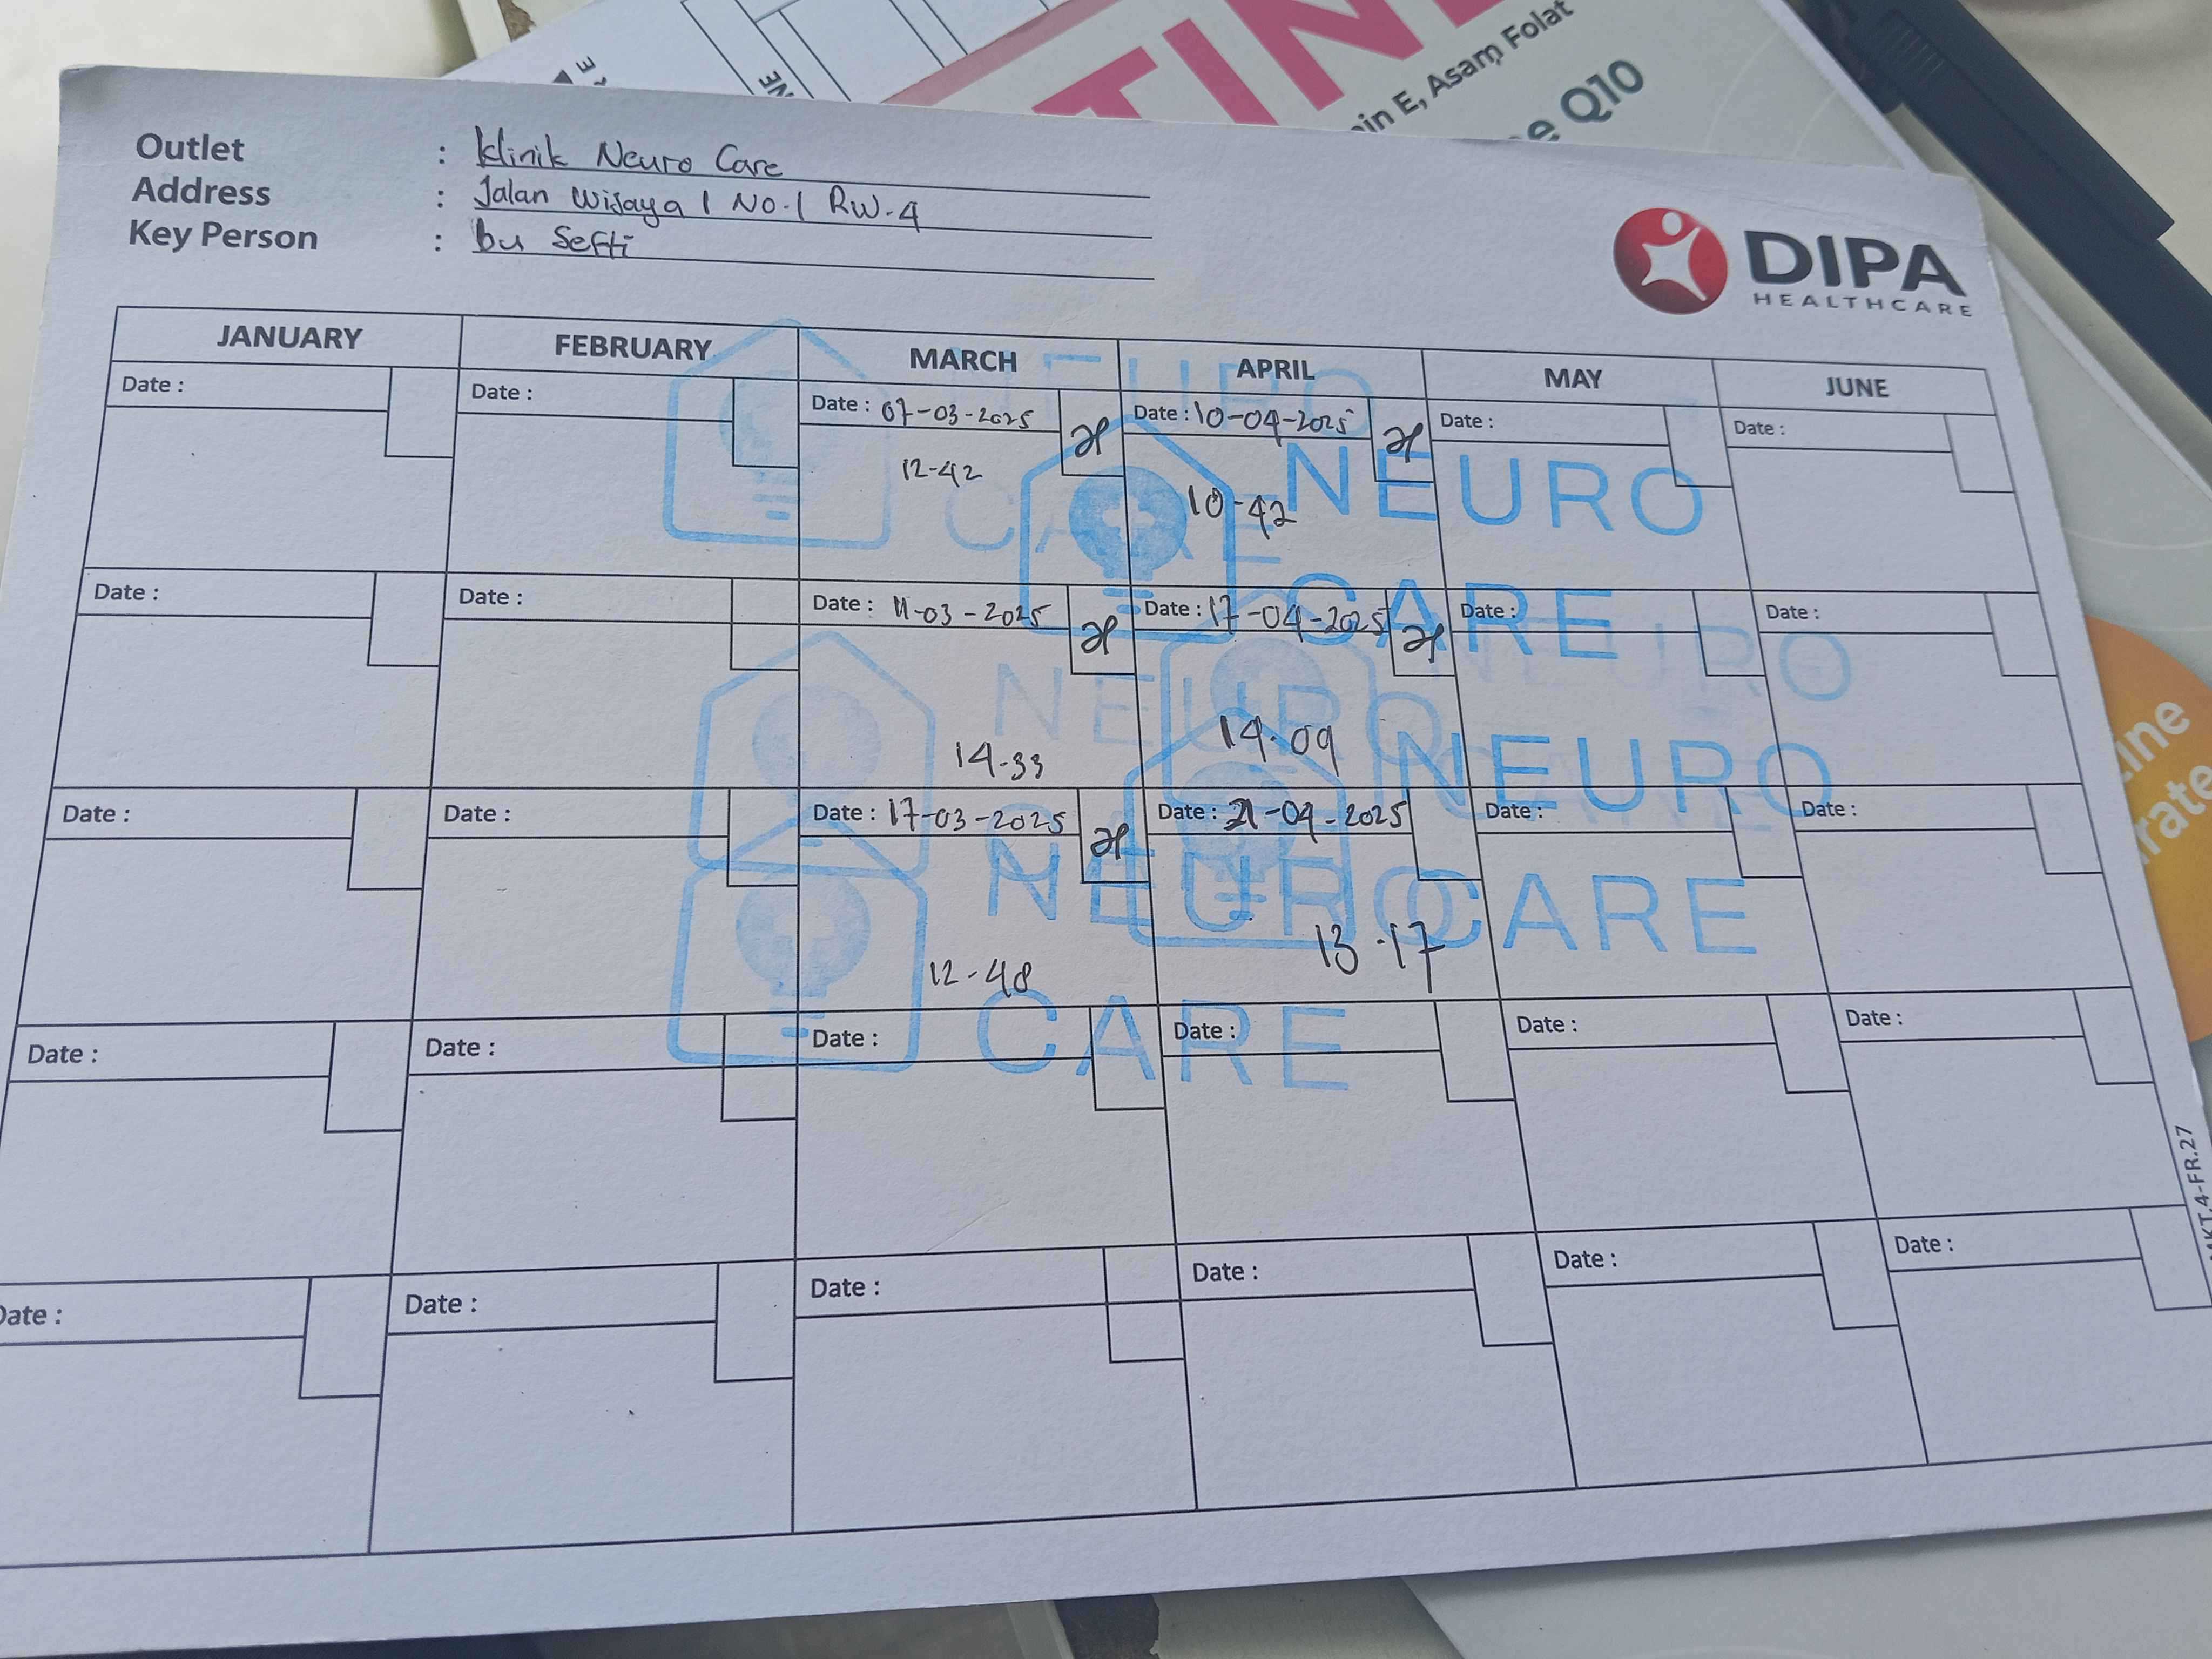 TINE
min E, Asam Folat
e Q10
Outlet : Klinik Neuro Care
Address : Jalan Wijaya 1 No.1 RW.4
Key Person : bu Sefti
DIPA
HEALTHCARE
JANUARY FEBRUARY MARCH APRIL MAY JUNE
Date : Date : Date : 07-03-2025 Date : 10-04-2025 Date : Date :
12-42 10-42
Date : Date : Date : 11-03-2025 Date : 17-04-2025 Date : Date :
14-33 14.09
Date : Date : Date : 17-03-2025 Date : 21-04-2025 Date : Date :
12-48 13.17
Date : Date : Date : Date : Date : Date :
Date : Date : Date : Date : Date : Date :
NEURO
CARE
NEURO
CARE
NEURO
CARE
NEURO
NEURO
CARE
MKT.4-FR.27
ine
rate